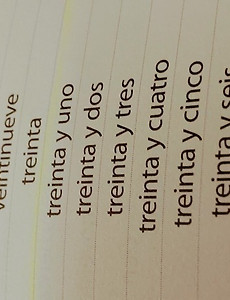 veintinueve
treinta
treinta y uno
treinta y dos
treinta y tres
treinta y cuatro
treinta y cinco
treinta y seis